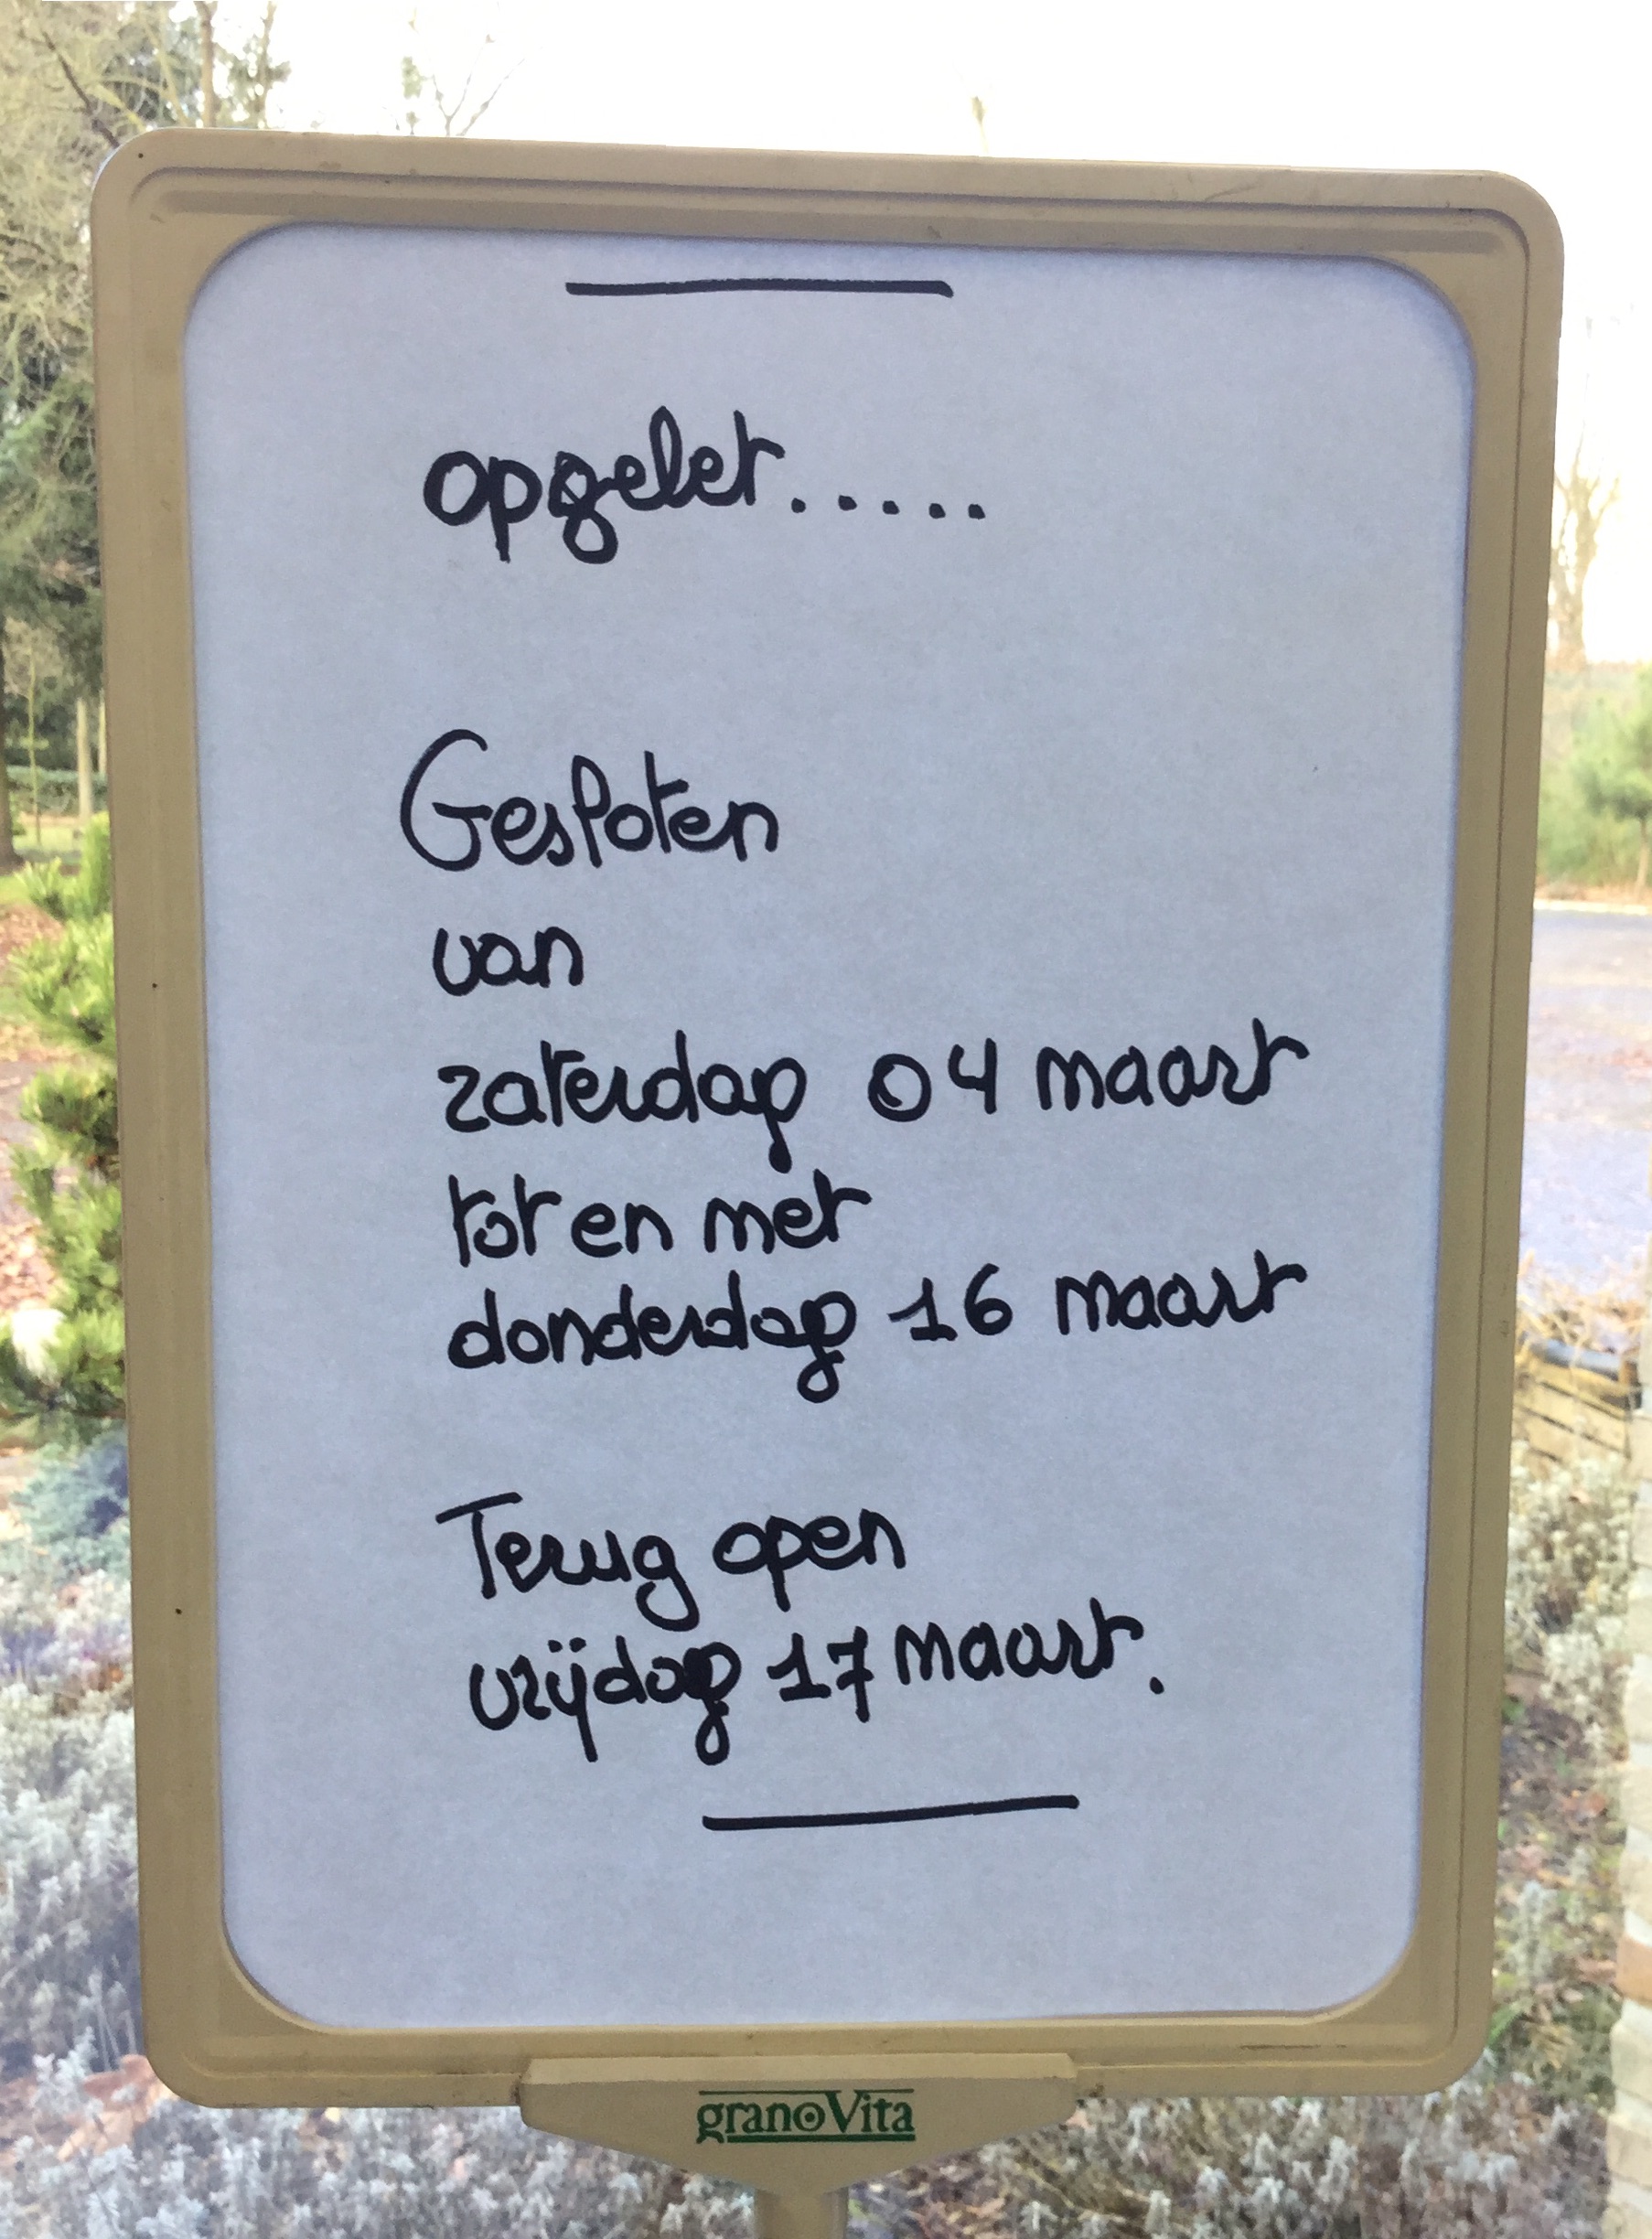 opgelet.....
Gesloten
van
zaterdag 04 maart
tot en met
donderdag 16 maart
Terug open
vrijdag 17 maart.
granoVita